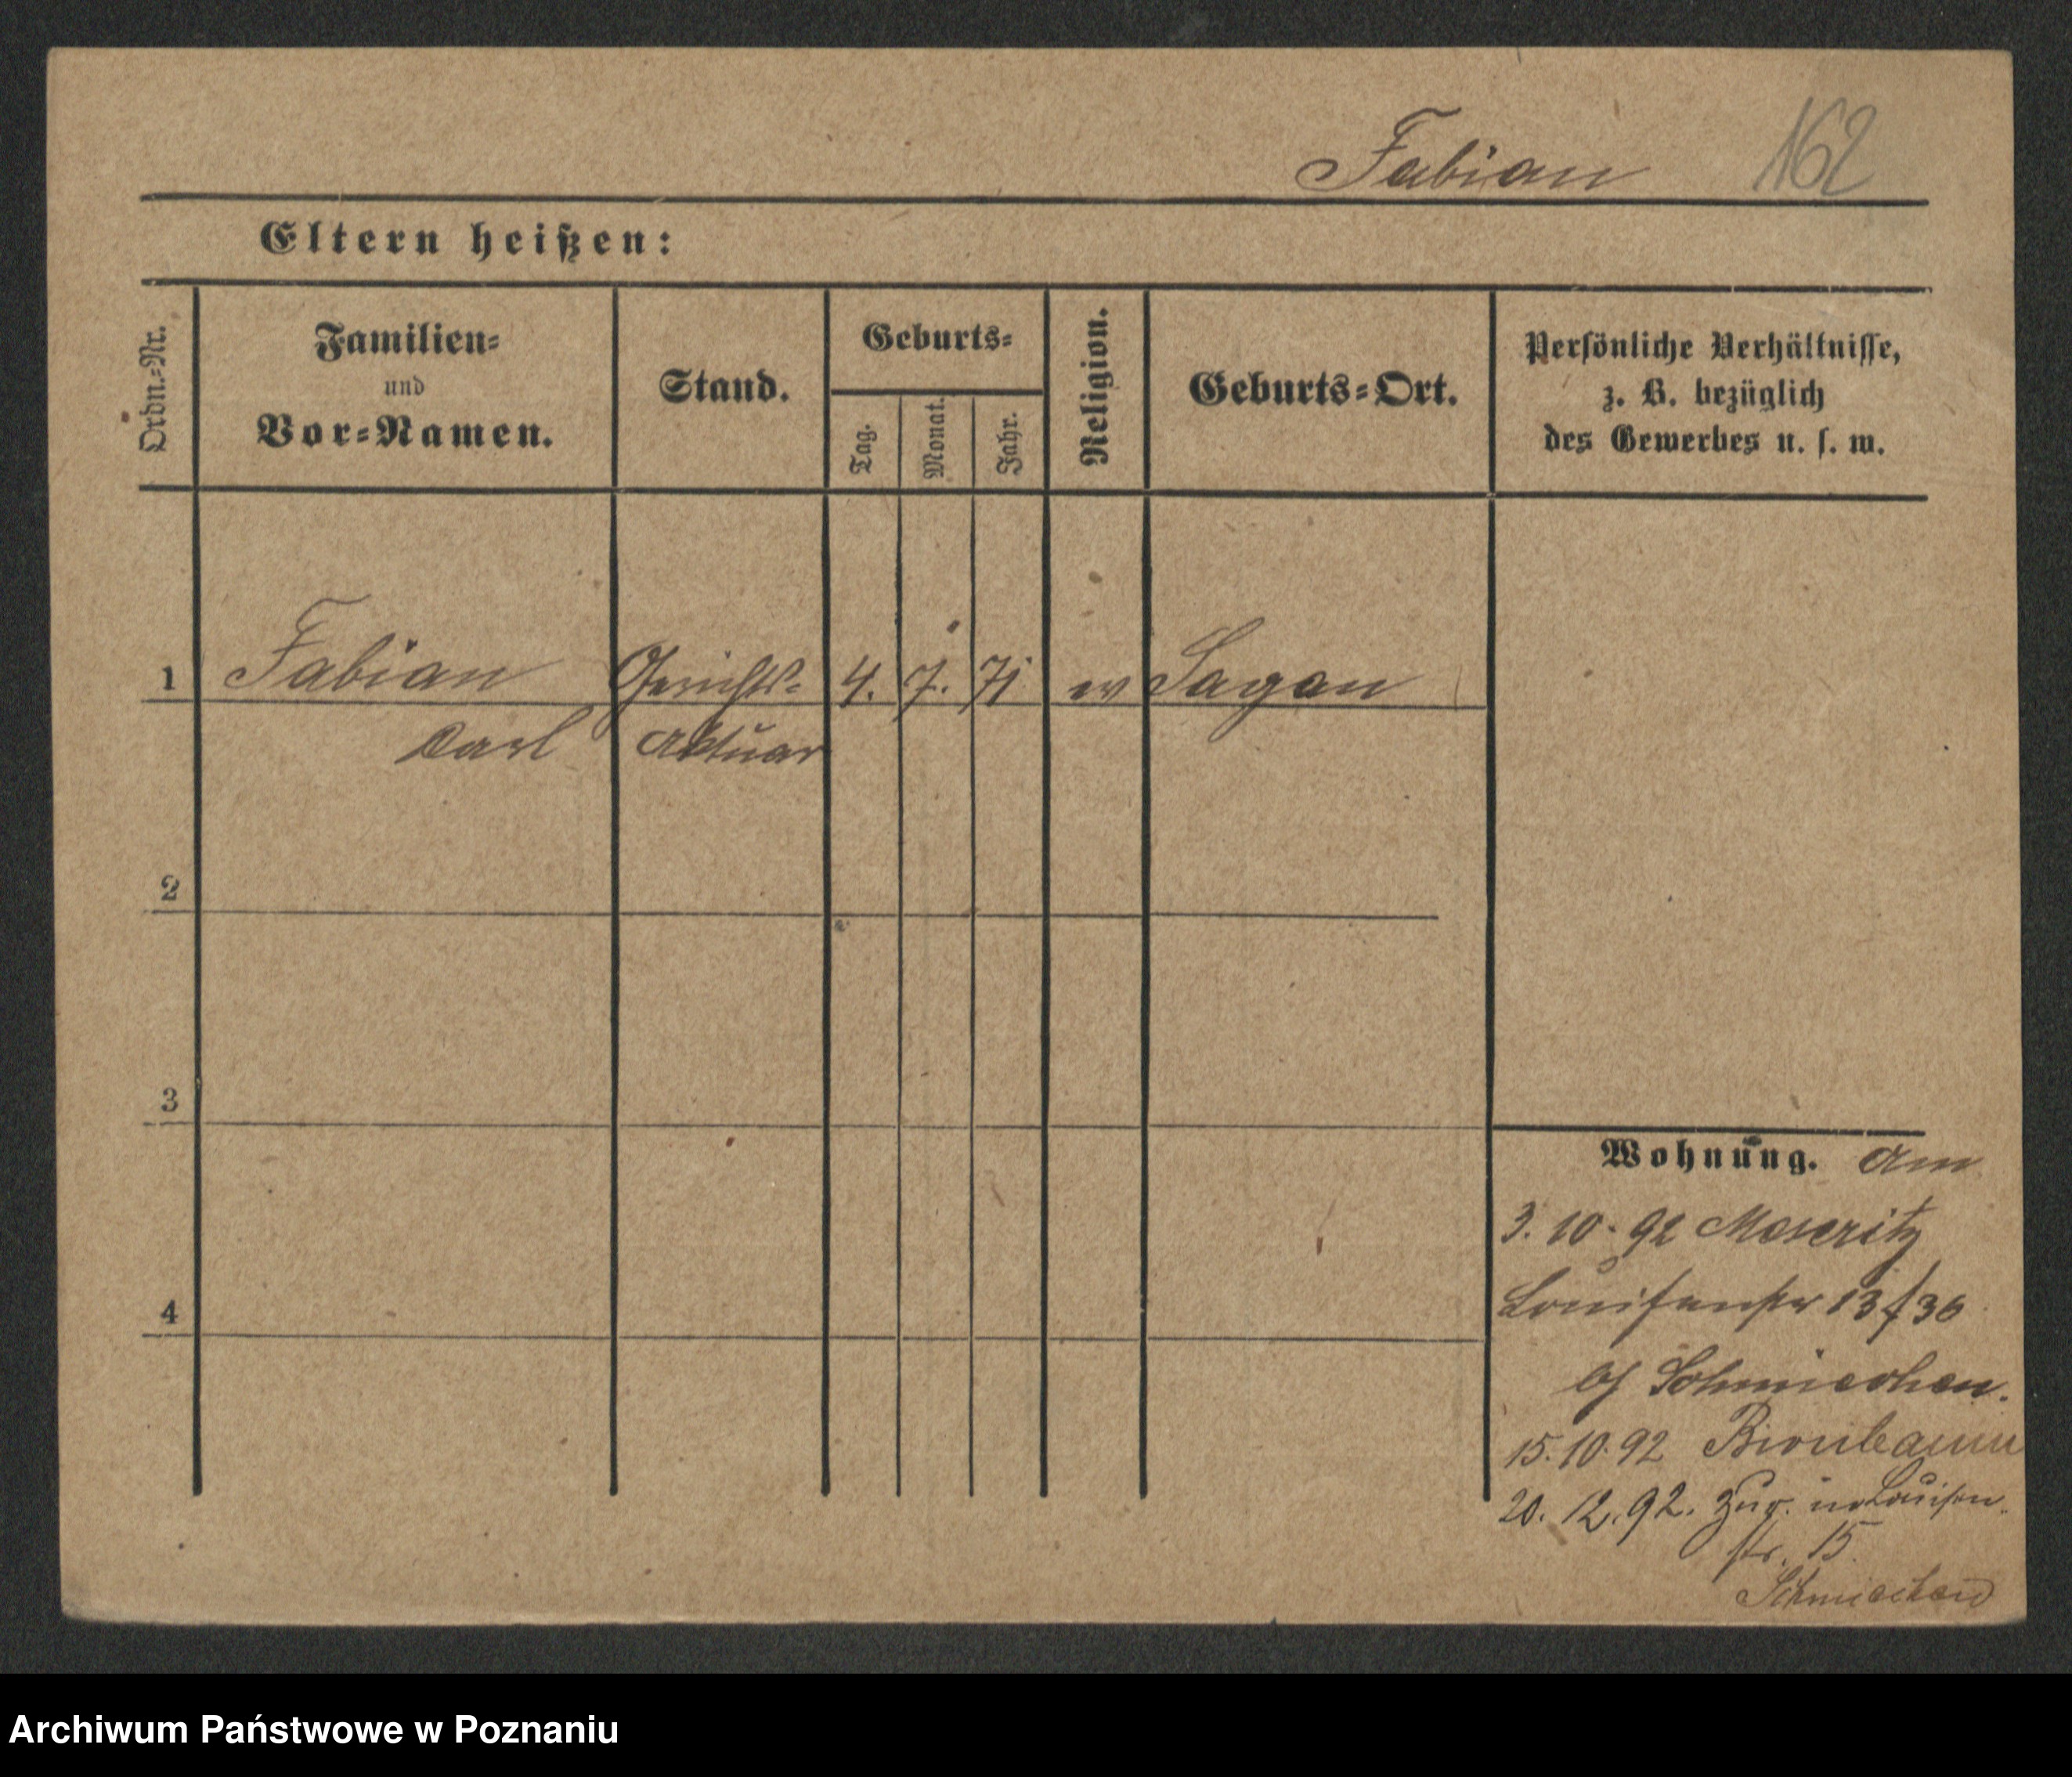 Fabian 162
Eltern heißen:
Ordn.-Nr.
Familien-
und
Vor-Namen.
Stand.
Geburts-
Tag.
Monat.
Jahr.
Religion.
Geburts-Ort.
Persönliche Verhältnisse,
z. B. bezüglich
des Gewerbes u. s. w.
1 Fabian Gerichts- 4. 7. 71 ev Sagan
Carl Aktuar
2
3
4
Wohnung. am
3. 10. 92 Meseritz
Louisenstr 13/36
bei Schmiechen.
15. 10. 92 Birnbaum
20. 12. 92. Zur. Louisen-
str. 15.
Schmiechen
Archiwum Państwowe w Poznaniu